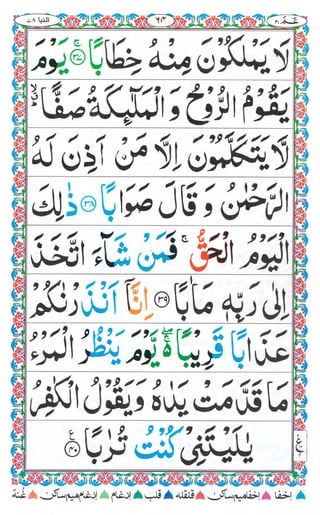 النبا ٧٨ ٦٤ عم ٣٠
لَا يَمْلِكُوْنَ مِنْهُ خِطَابًا ۚ﴿٣٧﴾ يَوْمَ
يَقُوْمُ الرُّوْحُ وَ الْمَلٰٓئِكَةُ صَفًّا ۙۗ
لَّا يَتَكَلَّمُوْنَ اِلَّا مَنْ اَذِنَ لَهُ
الرَّحْمٰنُ وَ قَالَ صَوَابًا ﴿٣٨﴾ ذٰلِكَ
الْيَوْمُ الْحَقُّ ۚ فَمَنْ شَآءَ اتَّخَذَ
اِلٰى رَبِّهٖ مَاٰبًا ﴿٣٩﴾ اِنَّاۤ اَنْذَرْنٰكُمْ
عَذَابًا قَرِيْبًا ۚۖ۬ يَّوْمَ يَنْظُرُ الْمَرْءُ
مَا قَدَّمَتْ يَدٰهُ وَ يَقُوْلُ الْكٰفِرُ
يٰلَيْتَنِيْ كُنْتُ تُرٰبًا ﴿٤٠﴾
اخفا اخفامیم ساکن قلقله قلب ادغام ادغام میم ساکن غنة